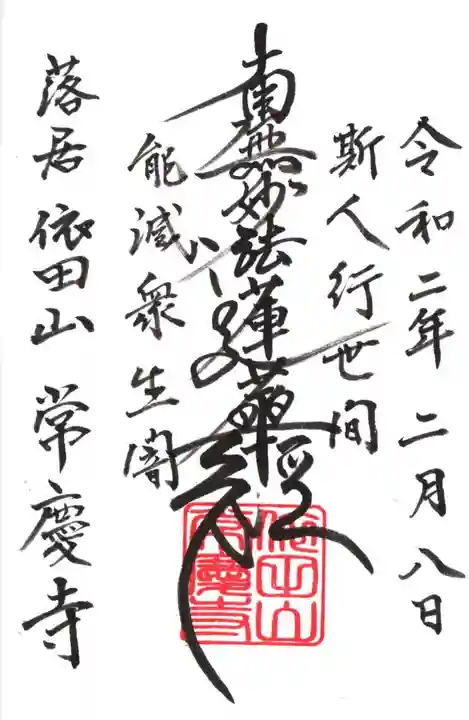 令和二年 二月八日
斯人行世間
南無妙法蓮華経
能滅衆生闇
落居 依田山 常慶寺
依田山
常慶寺